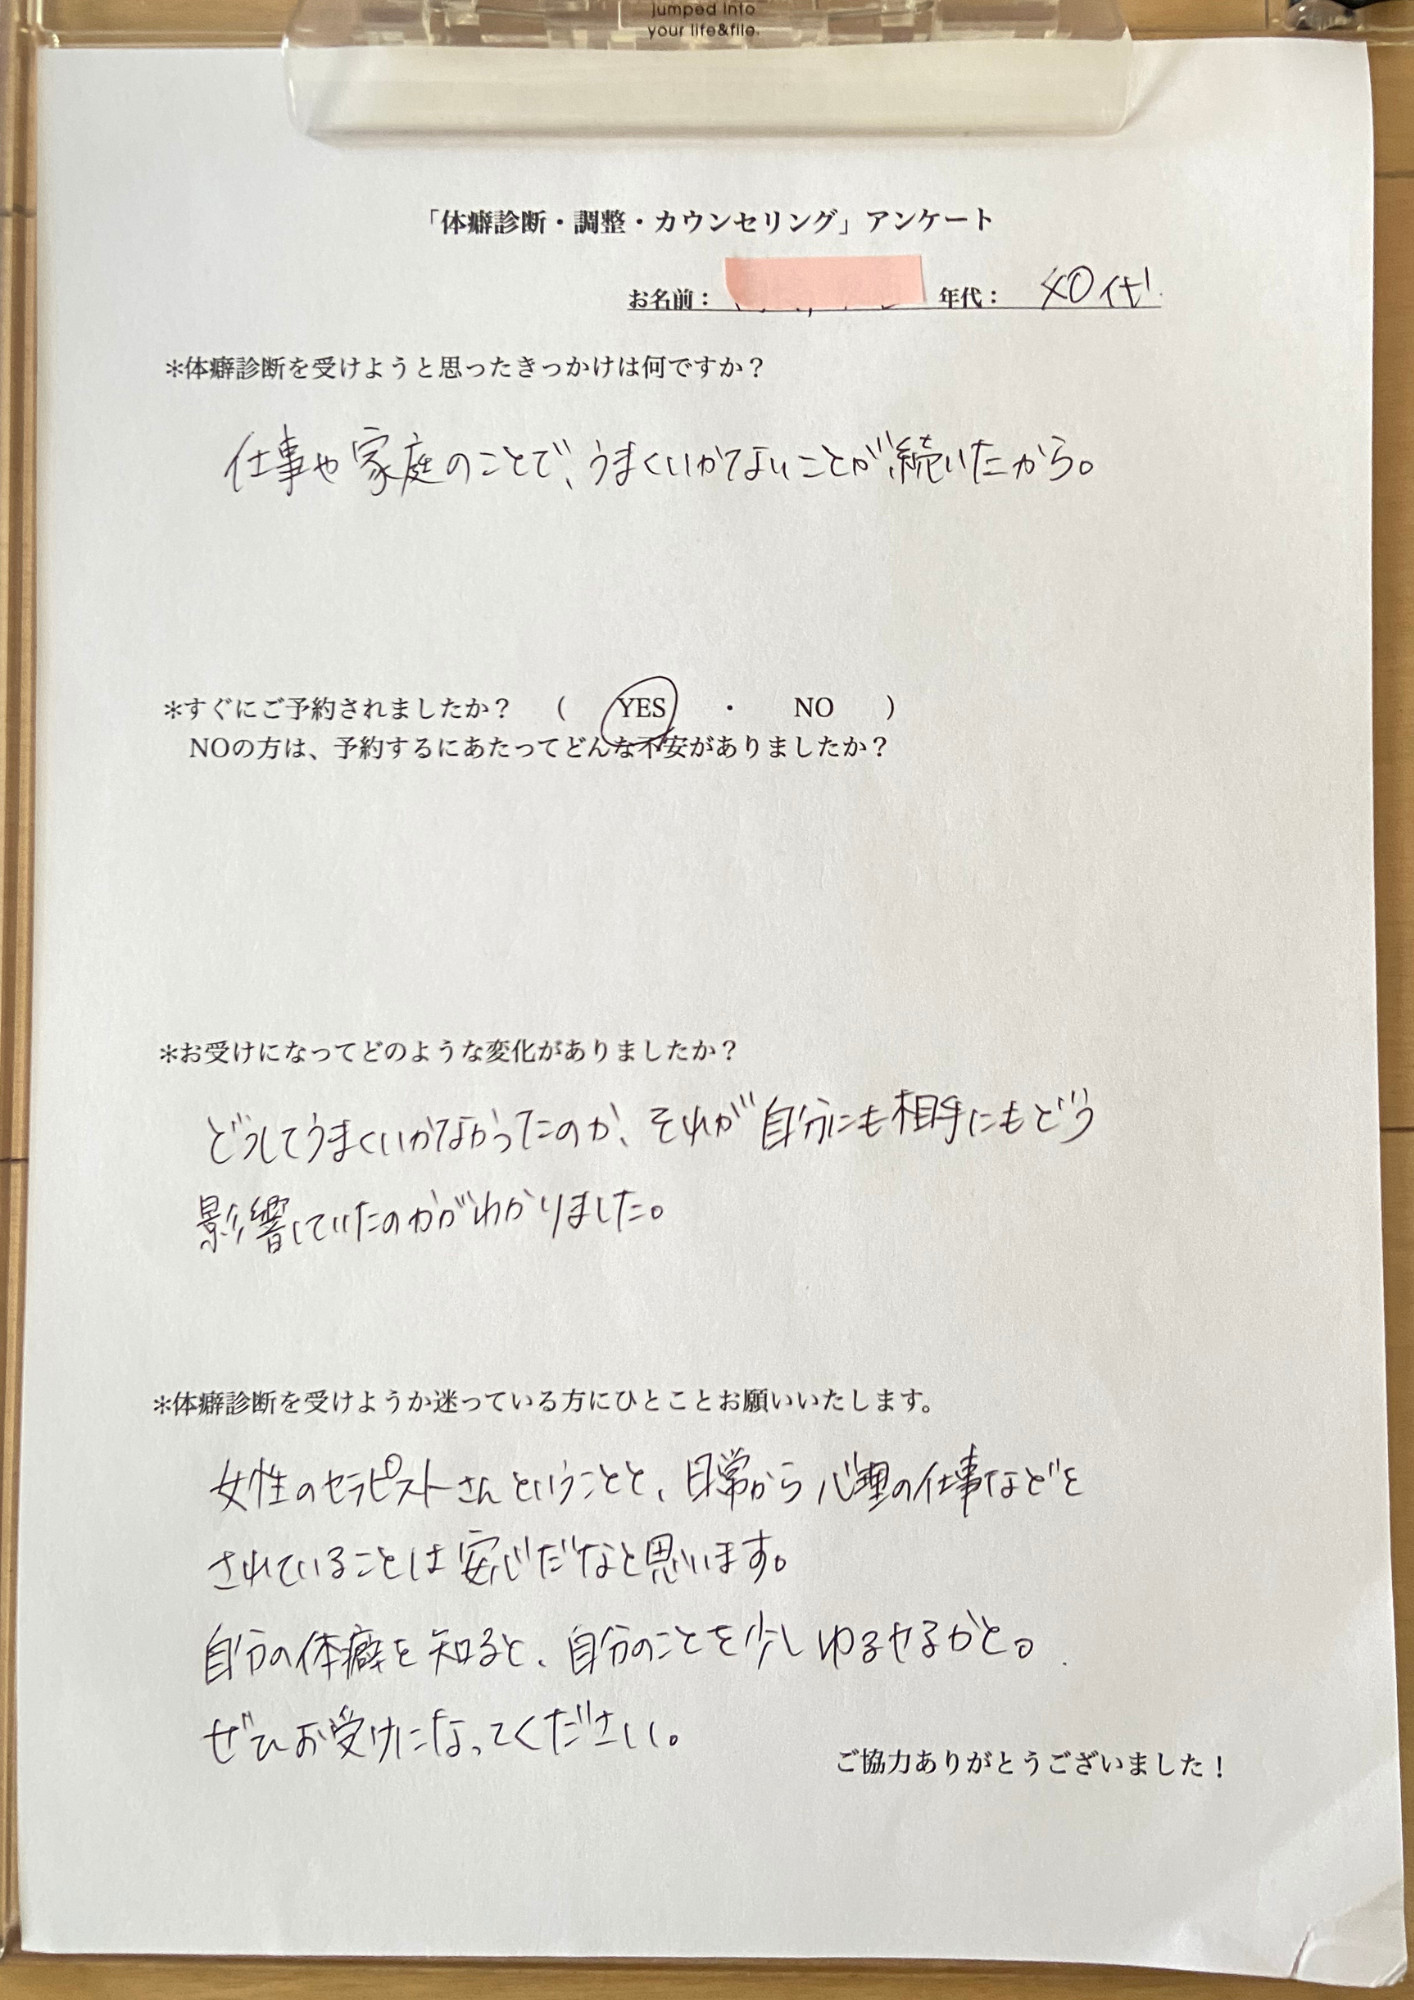 jumped into
your life&file.
「体癖診断・調整・カウンセリング」アンケート
お名前： 年代： 40代
*体癖診断を受けようと思ったきっかけは何ですか？
仕事や家庭のことで、うまくいかないことが続いたから。
*すぐにご予約されましたか？ （ YES ・ NO ）
NOの方は、予約するにあたってどんな不安がありましたか？
*お受けになってどのような変化がありましたか？
どうしてうまくいかなかったのか、それが自分にも相手にもどう
影響していたのかがわかりました。
*体癖診断を受けようか迷っている方にひとことお願いいたします。
女性のセラピストさんということと、日常から心理の仕事などを
されていることは安心だなと思います。
自分の体癖を知ると、自分のことを少しゆるせるかと。
ぜひお受けになってください。
ご協力ありがとうございました！